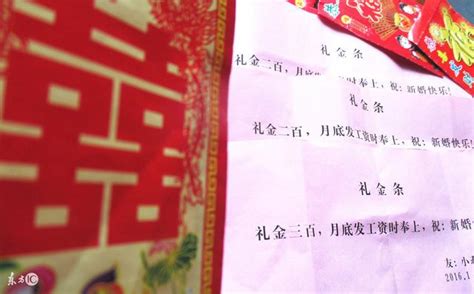 囍
礼金条
礼金二百，月底发工资时奉上，祝：新婚快乐！
礼金条
礼金二百，月底发工资时奉上，祝：新婚快乐！
礼金条
礼金三百，月底发工资时奉上，祝：新婚
友：小
2016.1
东方IC